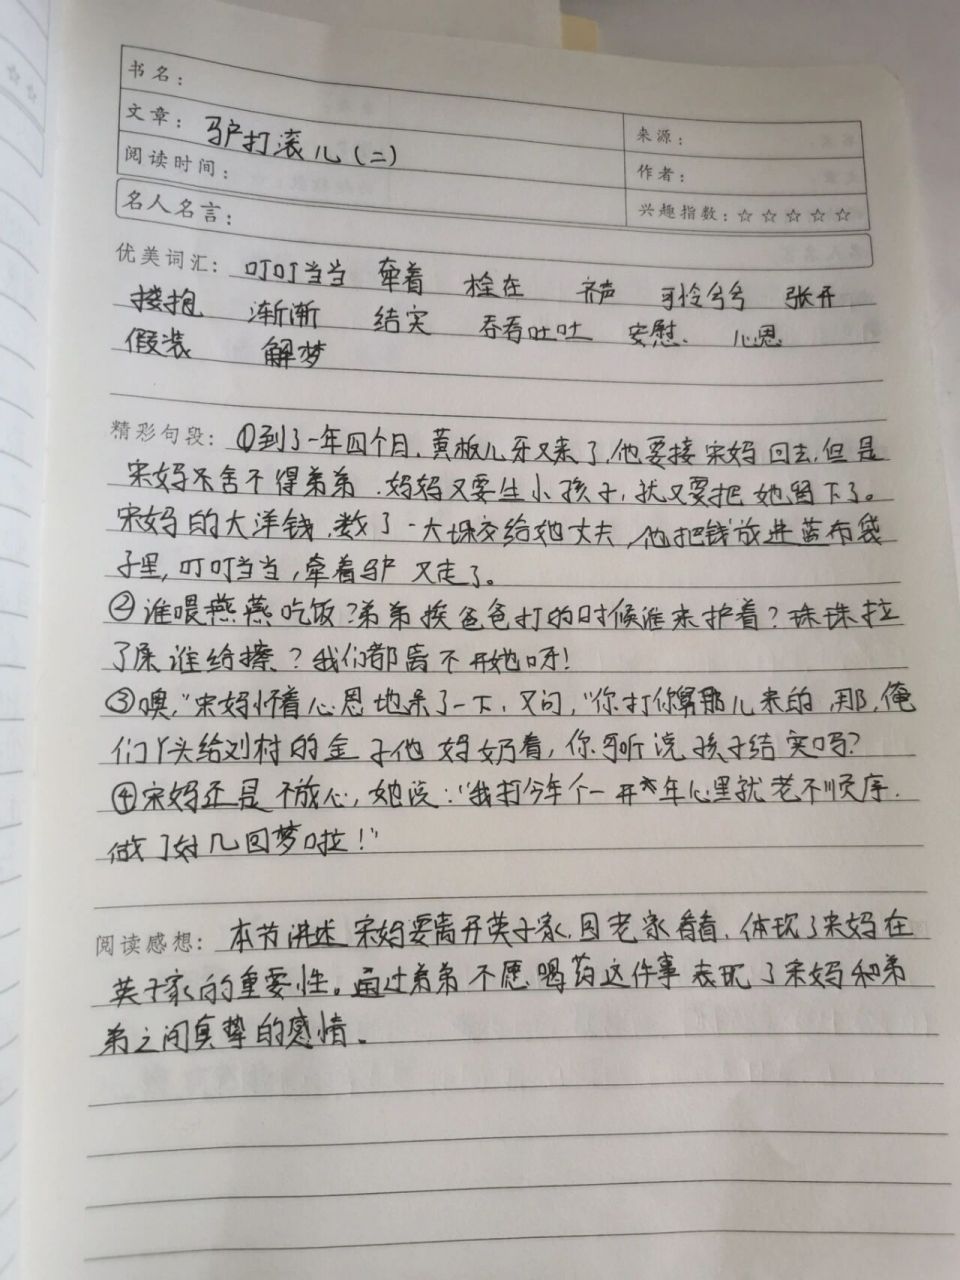 书名：
文章：驴打滚儿（二）
来源：
阅读时间：
作者：
名人名言：
兴趣指数：☆☆☆☆☆
优美词汇：叮叮当当 牵着 拴在 齐声 可怜兮兮 张开
搂抱 渐渐 结实 吞吞吐吐 安慰 心思
假装 解梦
精彩句段：①到了一年四个月，黄板儿牙又来了，他要接宋妈回去，但是
宋妈不舍不得弟弟，妈妈又要生小孩子，就又要把她留下了。
宋妈的大洋钱，数了一大垛交给她丈夫，他把钱放进蓝布袋
子里，叮叮当当，牵着驴又走了。
②谁喂燕燕吃饭？弟弟挨爸爸打的时候谁来护着？珠珠拉
了尿谁给擦？我们都离不开她呀！
③噢，”宋妈怀着心思地呆了一下，又问，“你打你舅那儿来的，那，俺
们丫头给刘村的金子他妈奶着，你可听说孩子结实吗？
④宋妈还是不放心，她说：“我打今年个一开年心里就老不顺序，
做了好几回梦啦！”
阅读感想：本节讲述宋妈要离开英子家，回老家看看，体现了宋妈在
英子家的重要性。通过弟弟不愿喝药这件事表现了宋妈和弟
弟之间真挚的感情。